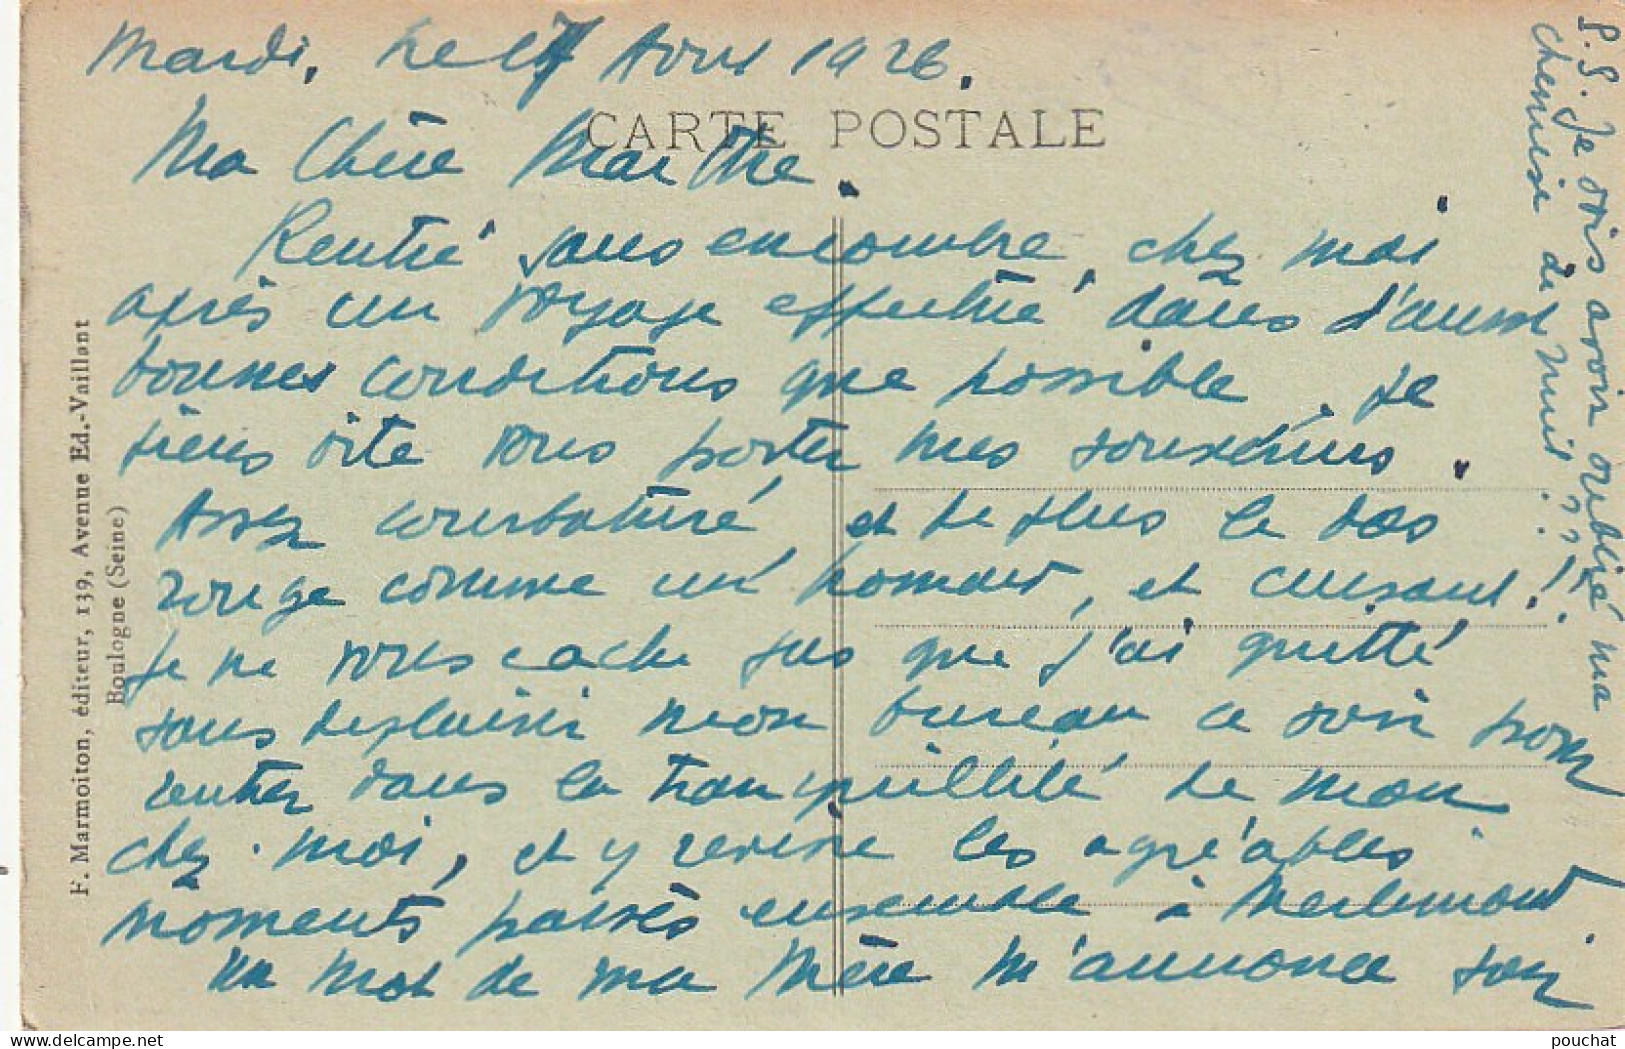 Mardi, Le 17 Aout 1926.
CARTE POSTALE
Ma Chère Marthe.
Rentré sans encombre, chez moi
après un voyage effectué dans d'aussi
bonnes conditions que possible. Je
viens vite vous porter mes souvenirs.
Assez courbaturé, et de plus le dos
rouge comme un homard, et cuisant!
Je ne vous cache pas que j'ai quitté
sans déplaisir mon bureau ce soir pour
rentrer dans la tranquillité de mon
chez-moi, et y revivre les agréables
moments passés ensemble à Merlimont.
Un mot de ma Mère m'annonce son
P.S. Je dois avoir oublié ma
chemise de nuit???!!
F. Marmoiton, éditeur, 139, Avenue Ed.-Vaillant
Boulogne (Seine)
© delcampe.net
pouchat